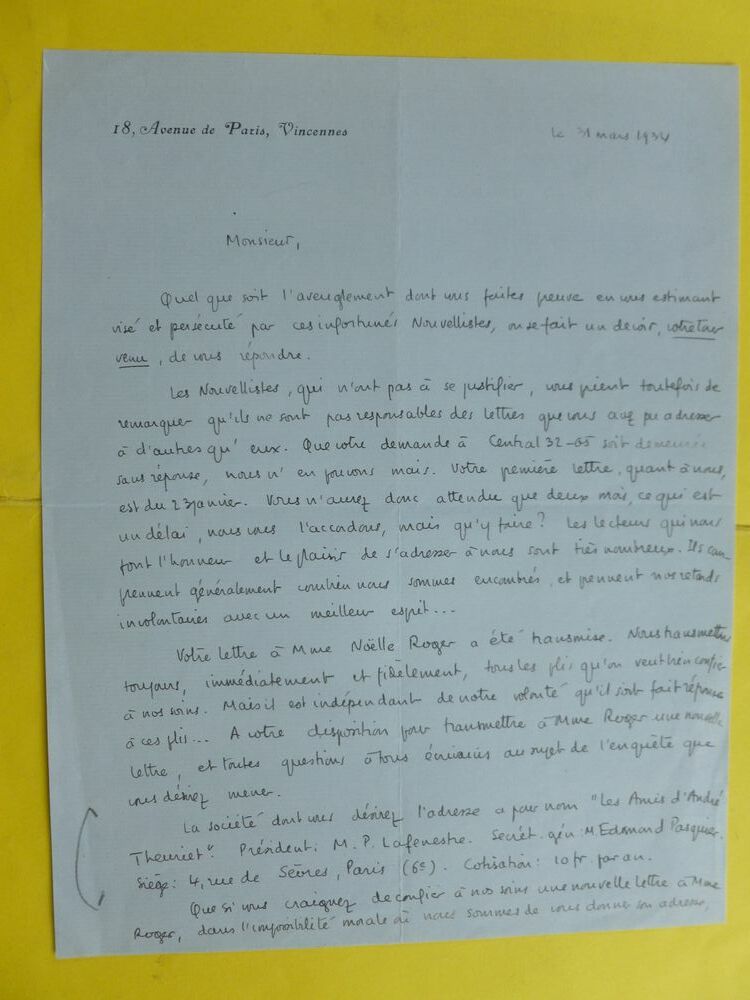 18, Avenue de Paris, Vincennes
le 31 mars 1934
Monsieur,
Quel que soit l'aveuglement dont vous faites preuve en vous estimant
visé et persécuté par ces infortunés Nouvellistes, on se fait un devoir, votre tour
venu, de vous répondre.
Les Nouvellistes, qui n'ont pas à se justifier, vous prient toutefois de
remarquer qu'ils ne sont pas responsables des lettres que vous avez pu adresser
à d'autres qu'eux. Que votre demande à Central 32-65 soit demeurée
sans réponse, nous n'en pouvons mais. Votre première lettre, quant à nous,
est du 23 janvier. Vous n'aurez donc attendu que deux mois, ce qui est
un délai, nous vous l'accordons, mais qu'y faire? Les lecteurs qui nous
font l'honneur et le plaisir de s'adresser à nous sont très nombreux. Ils com
prennent généralement combien nous sommes encombrés, et prennent nos retards
involontaires avec un meilleur esprit...
Votre lettre à Mme Noëlle Roger a été transmise. Nous transmettons
toujours, immédiatement et fidèlement, tous les plis qu'on veut bien confier
à nos soins. Mais il est indépendant de notre volonté qu'il soit fait réponse
à ces plis... A votre disposition pour transmettre à Mme Roger une nouvelle
lettre, et toutes questions à tous écrivains au sujet de l'enquête que
vous désirez mener.
La société dont vous désirez l'adresse a pour nom "Les Amis d'André
Theuriet". Président: M. P. Lafenestre. Secrét. gén: M Edmond Pasquier.
Siège: 4, rue de Sèvres, Paris (6e). Cotisation: 10 fr. par an.
Que si vous craignez de confier à nos soins une nouvelle lettre à Mme
Roger, dans l'impossibilité morale où nous sommes de vous donner son adresse,